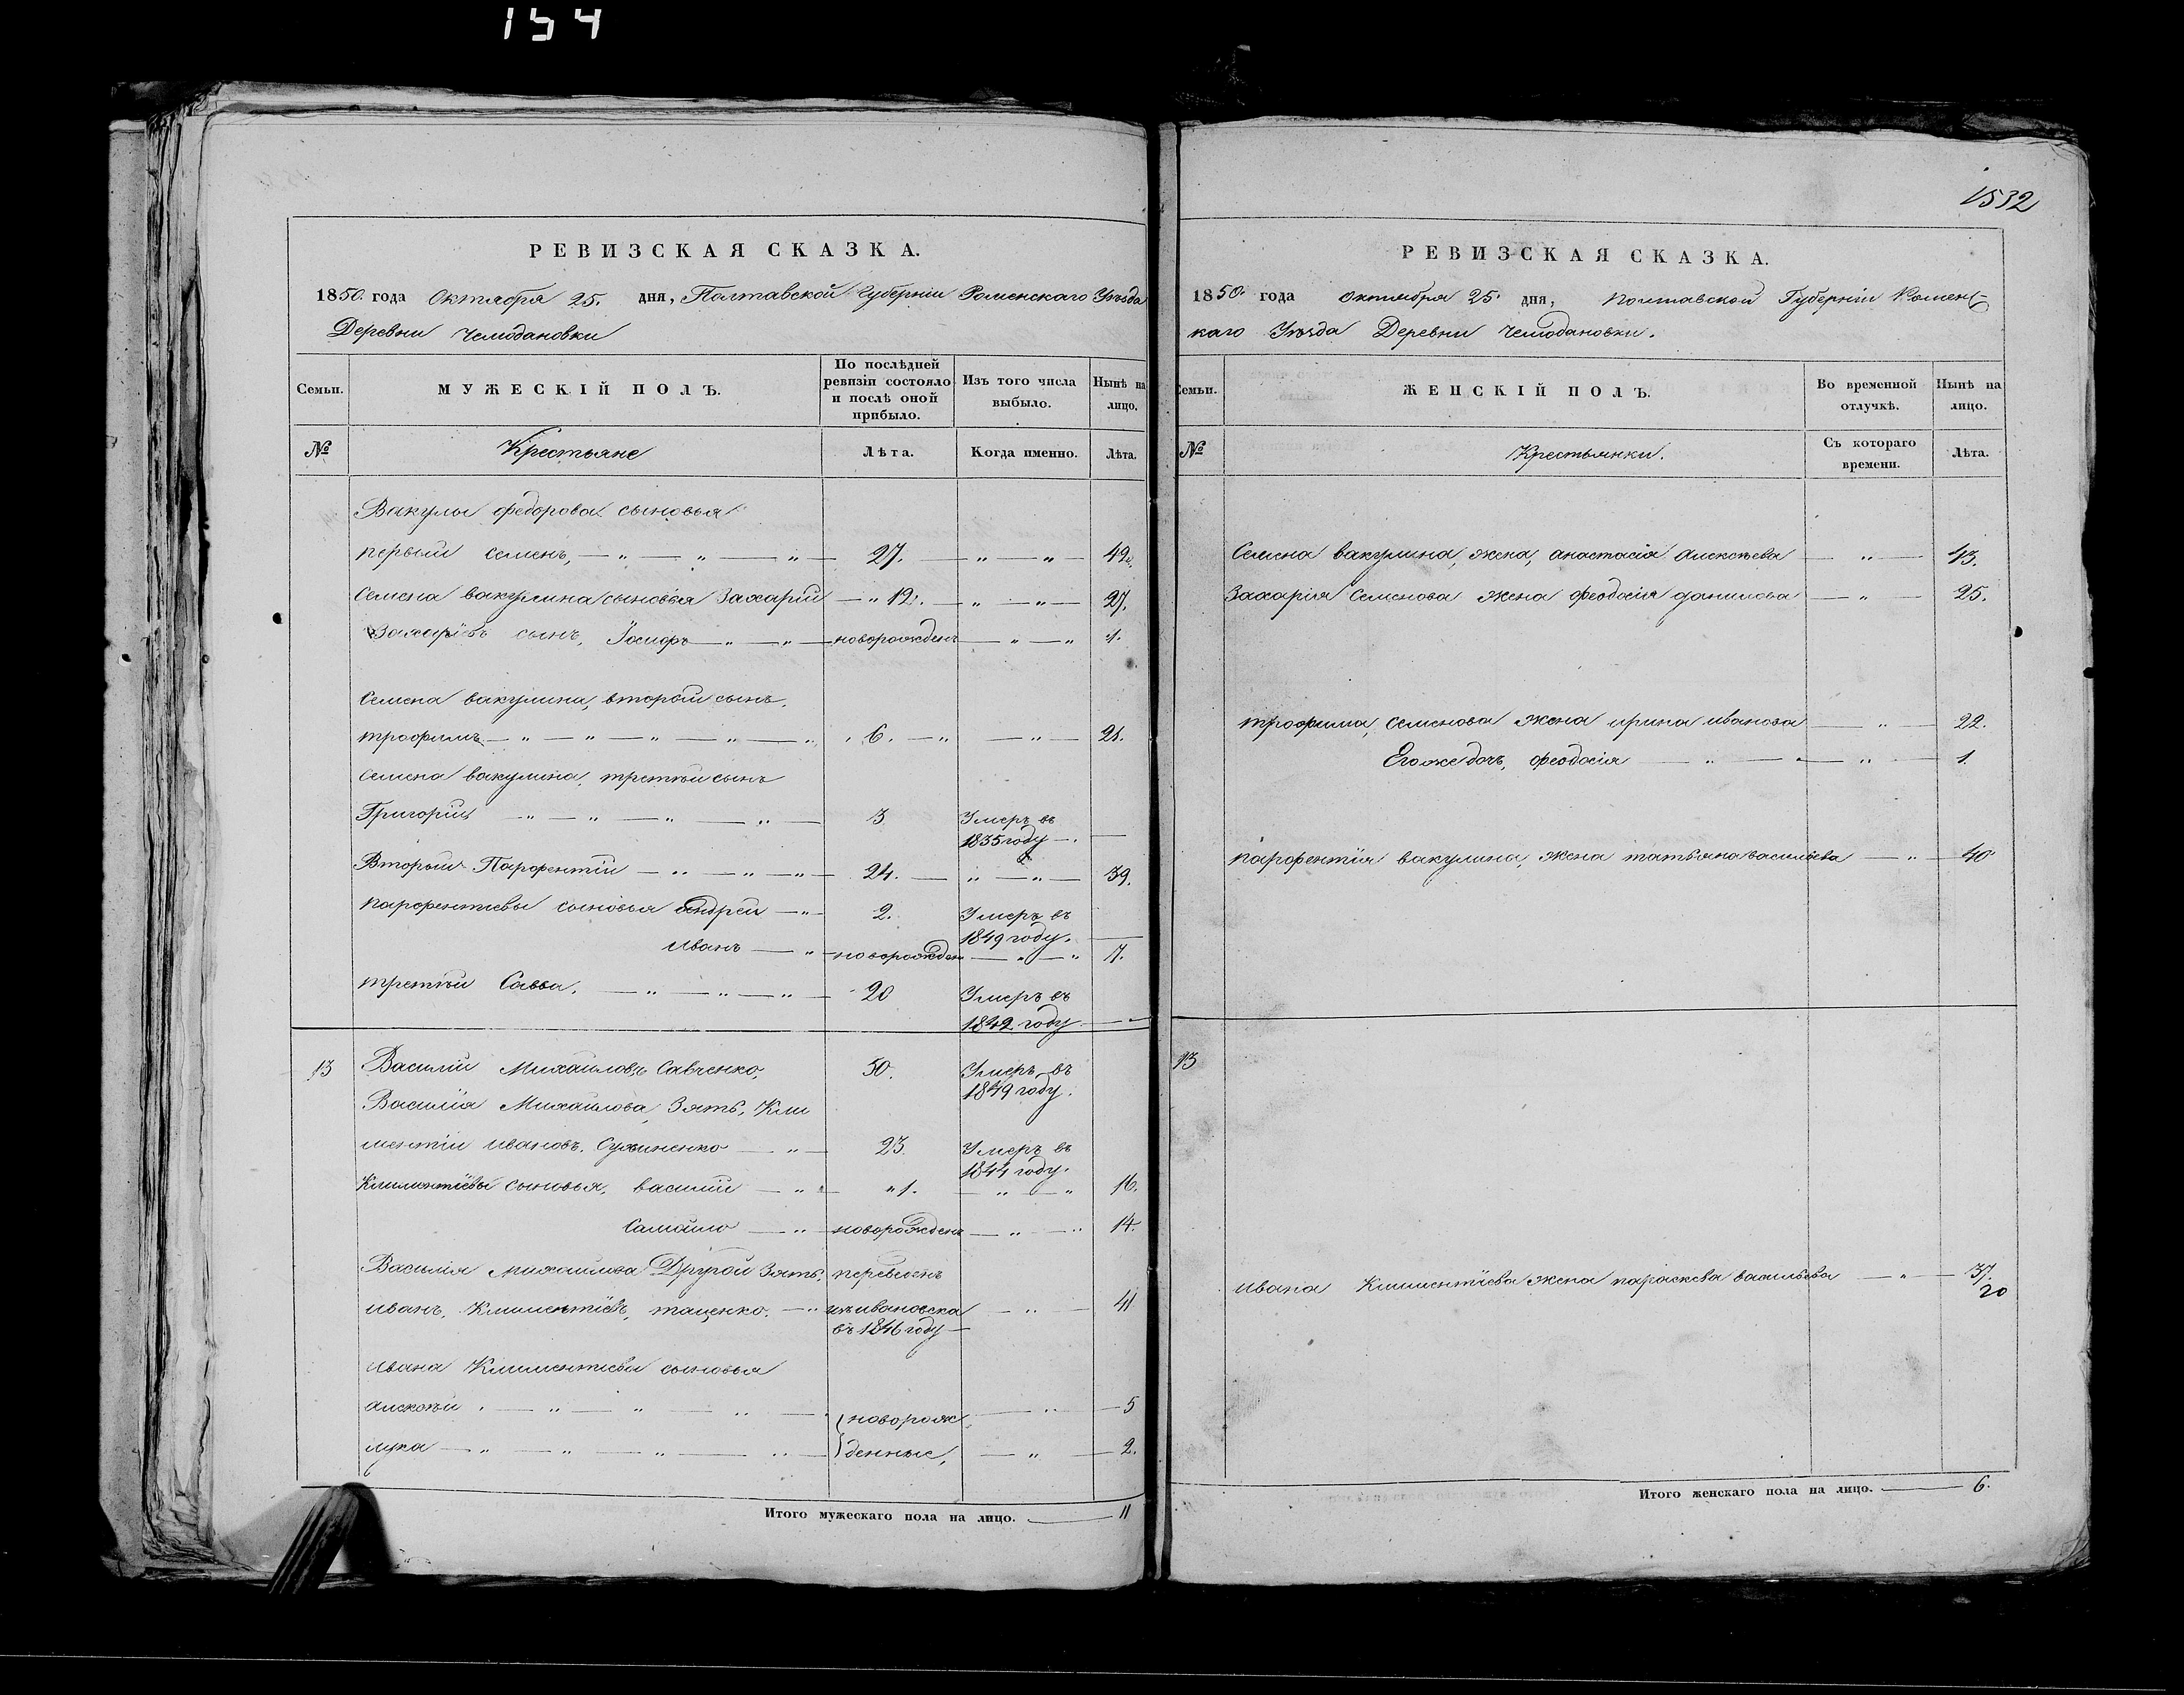 154
РЕВИЗСКАЯ СКАЗКА.
1850. года Октября 25. дня, Полтавской Губерніи Роменскаго Уѣзда
Деревни Чемодановки
Семьи.
МУЖЕСКІЙ ПОЛЪ.
По послѣдней ревизіи состояло и послѣ оной прибыло.
Изъ того числа выбыло.
Нынѣ на лицо.
№ Крестьяне Лѣта. Когда именно. Лѣта.
Вакулы Федорова сыновья
первый Семенъ, — „ — „ — „ — 27. — „ — „ — 42.
Семена вакулина сыновья Захарій — „ 12. — „ — „ — 27.
Захаріевъ сынъ, Іосифъ — „ — „ — новорожденъ — „ — „ 1.
Семена вакулина, второй сынъ,
трофимъ — „ — „ — „ — „ — „ 6. — „ — „ — 21.
Семена вакулина, третій сынъ
Григорій — „ — „ — „ — „ — 3 Умеръ въ
1835 году —. —
Вторый Парфентій — „ — „ — „ — 24. — „ — „ — 39.
парфентіевы сыновья андрей — „ — 2. Умеръ въ
1849 году. —
Иванъ — „ — новорожден — „ — „ 7.
третій Савва, — „ — „ — „ — 20 Умеръ въ
1842 году — —
13 Василій Михайловъ Савченко, 50. Умеръ въ
1849 году.
Василія Михайлова, Зять, Кли
ментій ивановъ, Сухиненко — „ — 23. Умеръ въ
1844 году.
Климентіевы сыновья, василій — „ — „ 1. — „ — „ 16.
Самойло — „ — новорожденъ — „ — „ 14.
Василія михайлова Другой Зять, переведенъ
иванъ, Климентіевъ, таценко. — „ изъ ивановска — „ — 41
въ 1846 году —
ивана Климентіева сыновья
алексѣй . — „ — „ — „ — новорож — „ — 5
лука — „ — „ — „ — „ — денные, — „ — 2.
Итого мужескаго пола на лицо. — 11
1532
РЕВИЗСКАЯ СКАЗКА.
1850. года октября 25. дня, Полтавской Губерніи Роменс-
каго Уѣзда Деревни Чемодановки.
Семьи.
ЖЕНСКІЙ ПОЛЪ.
Во временной отлучкѣ.
Нынѣ на лицо.
№ Крестьянки. Съ котораго времени. Лѣта.
Семена вакулина, жена, анастасія алексѣева — „ — 43.
Захарія Семенова жена феодосія данилова — „ — 25.
трофима, семенова жена ирина иванова — „ — 22.
Егоже дочь, феодосія — „ — „ — 1.
парфентія вакулина, жена татьяна васильева — „ — 40.
13
ивана Климентіева жена параскева васильева — „ — 37.
20
Итого женскаго пола на лицо. — 6.